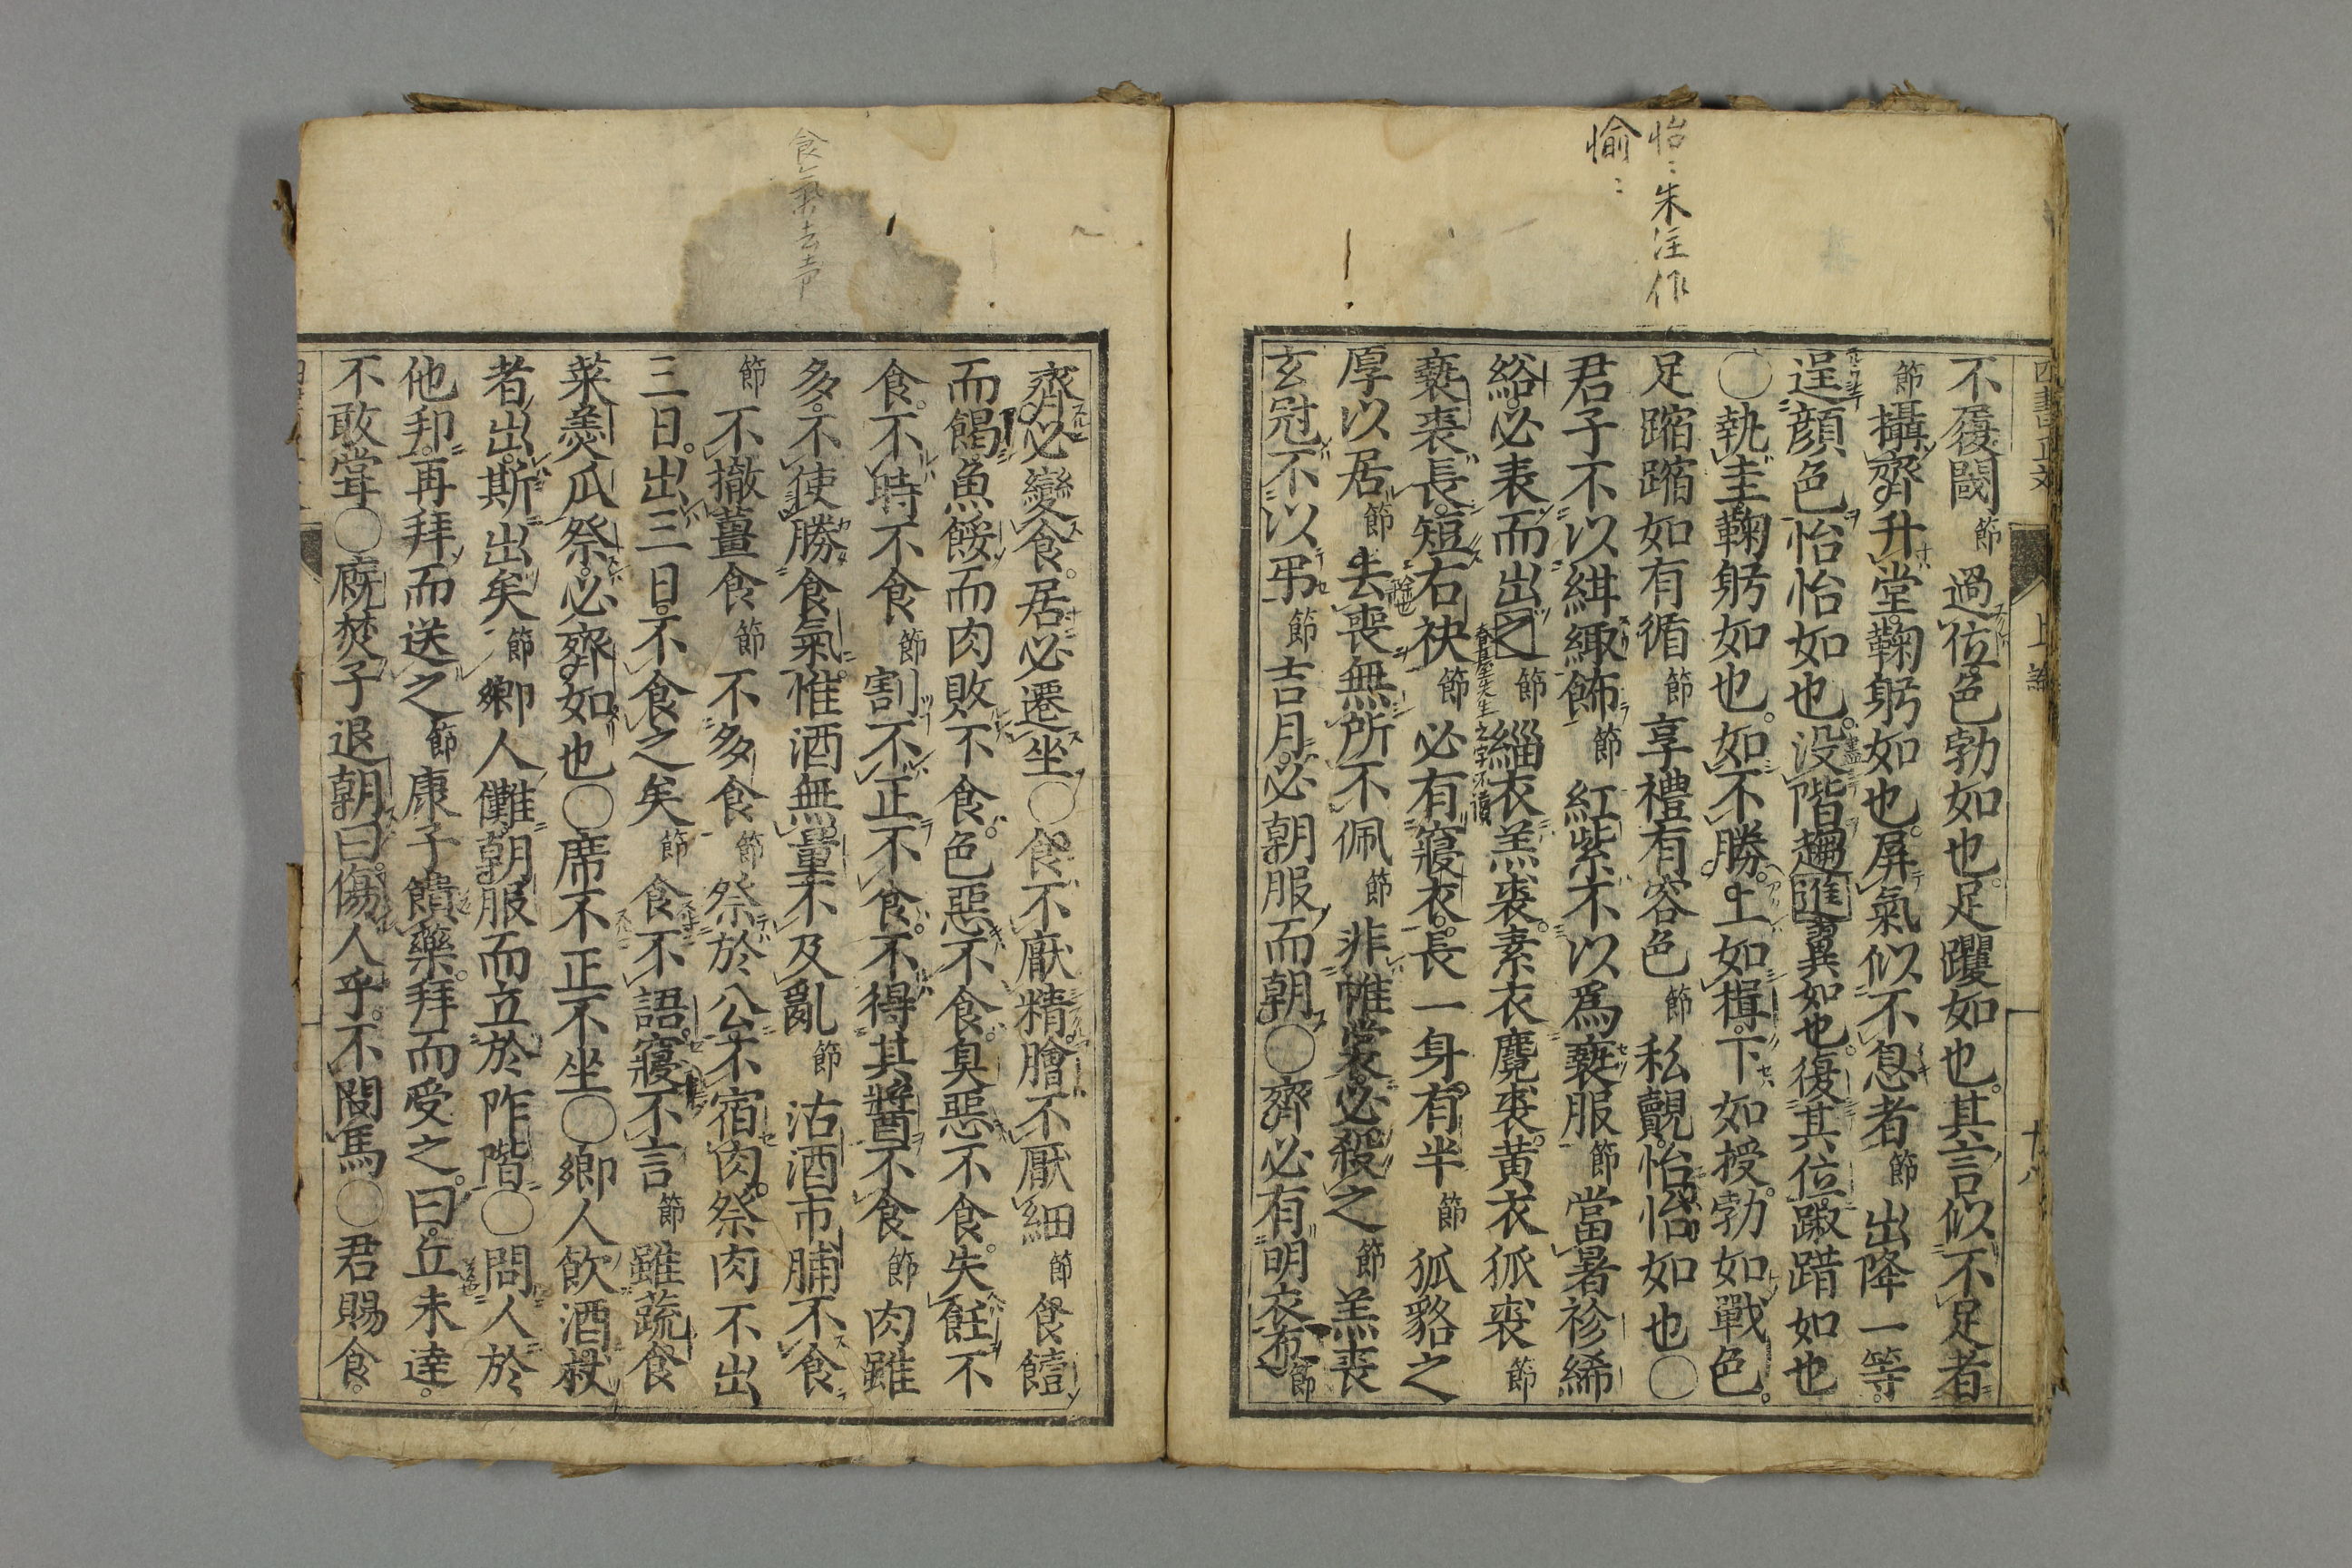 怡〻朱注作
愉〻
不履閾節過位色勃如也足躩如也其言似不足者
節攝齊升堂鞠躬如也屏氣似不息者節出降一等
逞顏色怡怡如也没階趨進翼如也復其位踧踖如也
○執圭鞠躬如也如不勝上如揖下如授勃如戰色
足蹜蹜如有循節享禮有容色節私覿怡怡如也○
君子不以紺緅飾節紅紫不以爲褻服節當暑袗絺
綌必表而出之節緇衣羔裘素衣麑裘黄衣狐裘節
褻裘長短右袂節必有寢衣長一身有半節狐貉之
厚以居節去喪無所不佩節非帷裳必殺之節羔裘
玄冠不以弔節吉月必朝服而朝○齊必有明衣布節
食氣去声
齊必變食居必遷坐○食不厭精膾不厭細節食饐
而餲魚餒而肉敗不食色惡不食臭惡不食失飪不
食不時不食節割不正不食不得其醬不食節肉雖
多不使勝食氣惟酒無量不及亂節沽酒市脯不食
節不撤薑食節不多食節祭於公不宿肉祭肉不出
三日出三日不食之矣節食不語寢不言節雖蔬食
菜羹瓜祭必齊如也○席不正不坐○鄉人飲酒杖
者出斯出矣節鄉人儺朝服而立於阼階○問人於
他邦再拜而送之節康子饋藥拜而受之曰丘未達
不敢嘗○廐焚子退朝曰傷人乎不問馬○君賜食